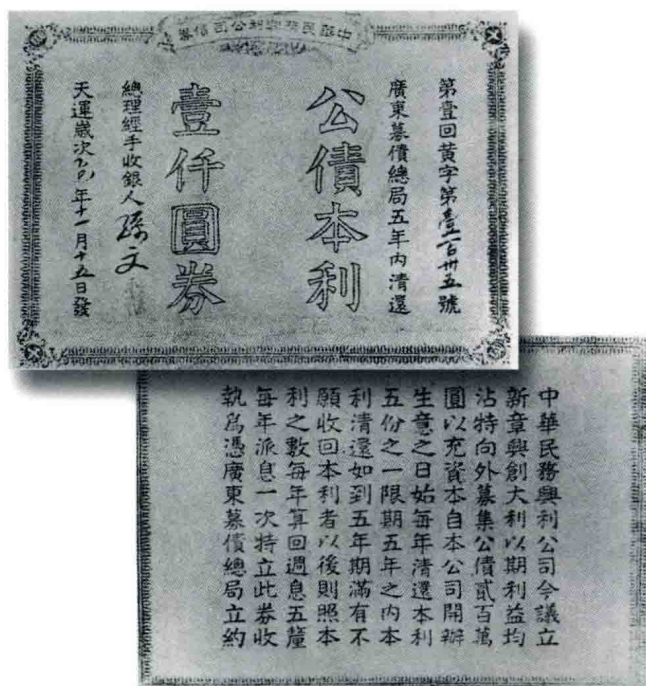 中華民務興利公司債券
第壹回黃字第壹百卅五號
廣東募債總局五年內清還
公債本利
壹仟圓券
總理經手收銀人孫文
天運歲次年十一月十五日發
中華民務興利公司令議立
新章興創大利以期利益均
沾特向外募集公債貳百萬
圓以充資本自本公司開辦
生意之日始每年清還本利
五份之一限期五年之內本
利清還如到五年期滿有不
願收回本利者以後則照本
利之數每年算回週息五釐
每年派息一次特立此券收
執爲憑廣東募債總局立約